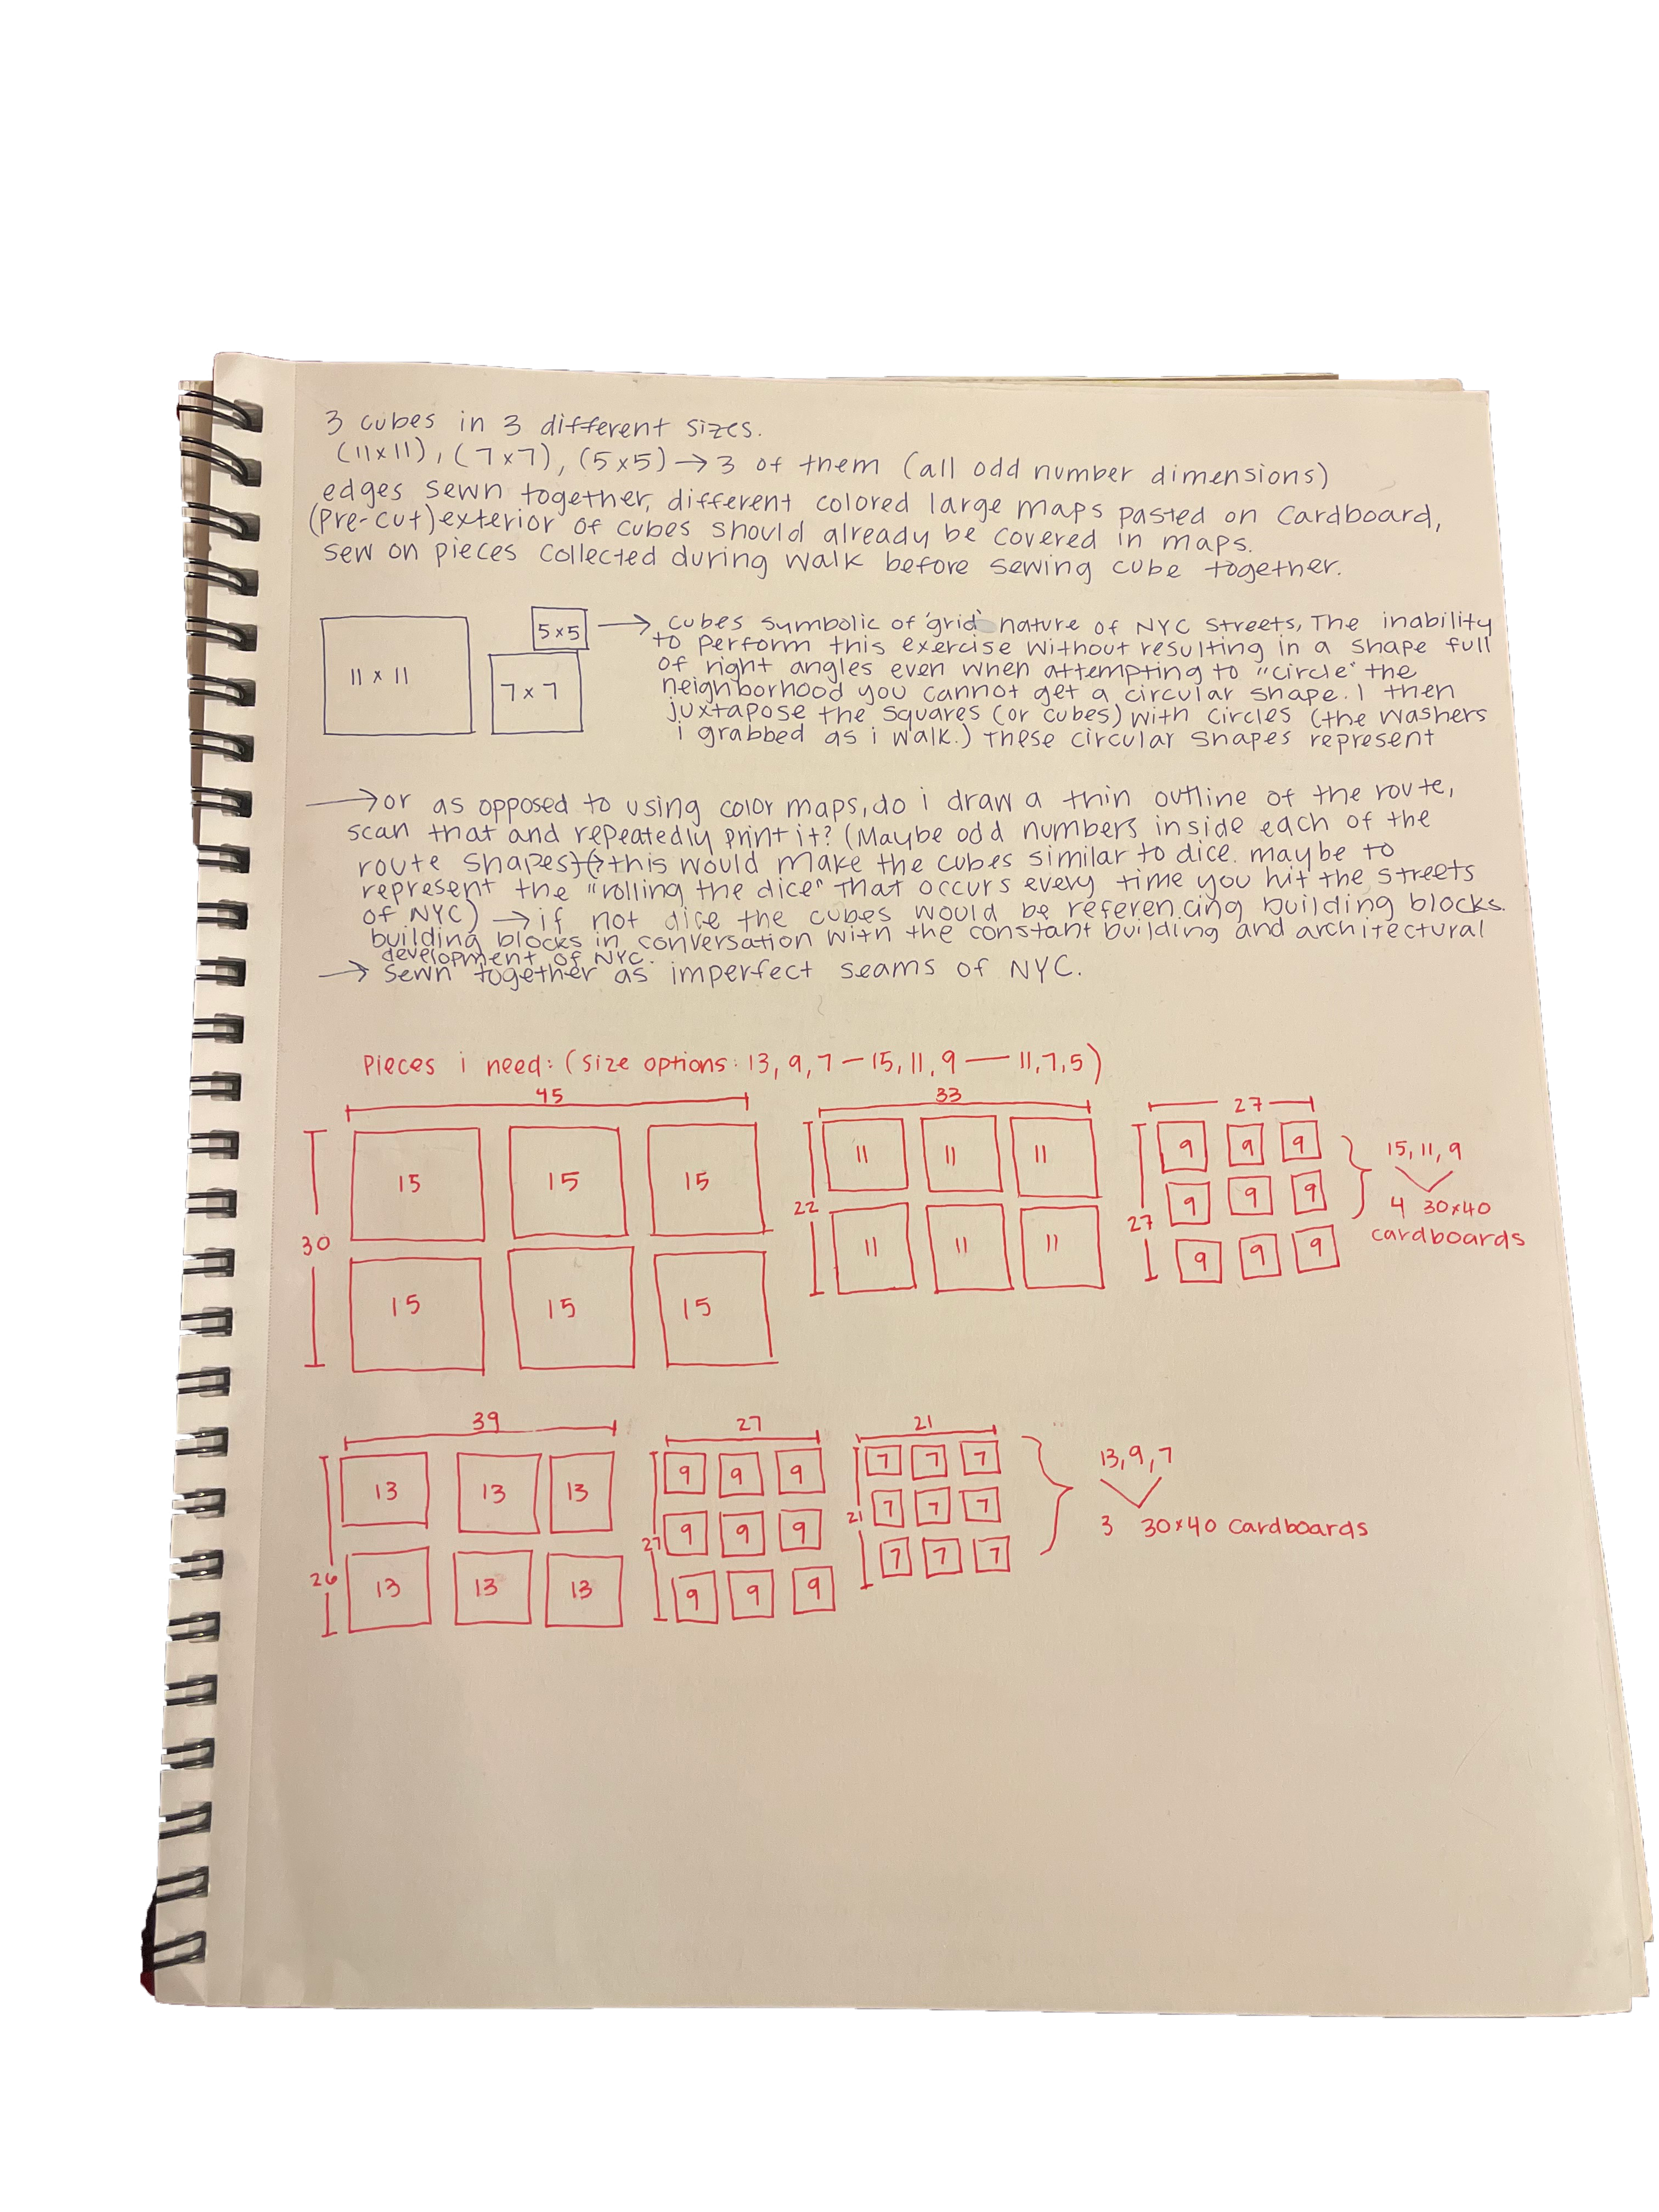 3 cubes in 3 different sizes.
(11x11), (7x7), (5x5) → 3 of them (all odd number dimensions)
edges sewn together, different colored large maps pasted on cardboard,
(pre-cut) exterior of cubes should already be covered in maps.
sew on pieces collected during walk before sewing cube together.
11 x 11
5 x 5
7 x 7
→ cubes symbolic of 'grid' nature of NYC streets, The inability
to perform this exercise without resulting in a shape full
of right angles even when attempting to "circle" the
neighborhood you cannot get a circular shape. I then
juxtapose the squares (or cubes) with circles (the washers
i grabbed as i walk.) These circular shapes represent
→ or as opposed to using color maps, do i draw a thin outline of the route,
scan that and repeatedly print it? (Maybe odd numbers inside each of the
route shapes) (→ this would make the cubes similar to dice. maybe to
represent the "rolling the dice" that occurs every time you hit the streets
of NYC) → if not dice the cubes would be referencing building blocks.
building blocks in conversation with the constant building and architectural
development of NYC.
→ Sewn together as imperfect seams of NYC.
Pieces i need: (size options: 13, 9, 7 — 15, 11, 9 — 11, 7, 5)
45
30
15 15 15
15 15 15
33
22
11 11 11
11 11 11
27
27
9 9 9
9 9 9
9 9 9
15, 11, 9
4 30x40
cardboards
39
26
13 13 13
13 13 13
27
27
9 9 9
9 9 9
9 9 9
21
21
7 7 7
7 7 7
7 7 7
13, 9, 7
3 30x40 cardboards